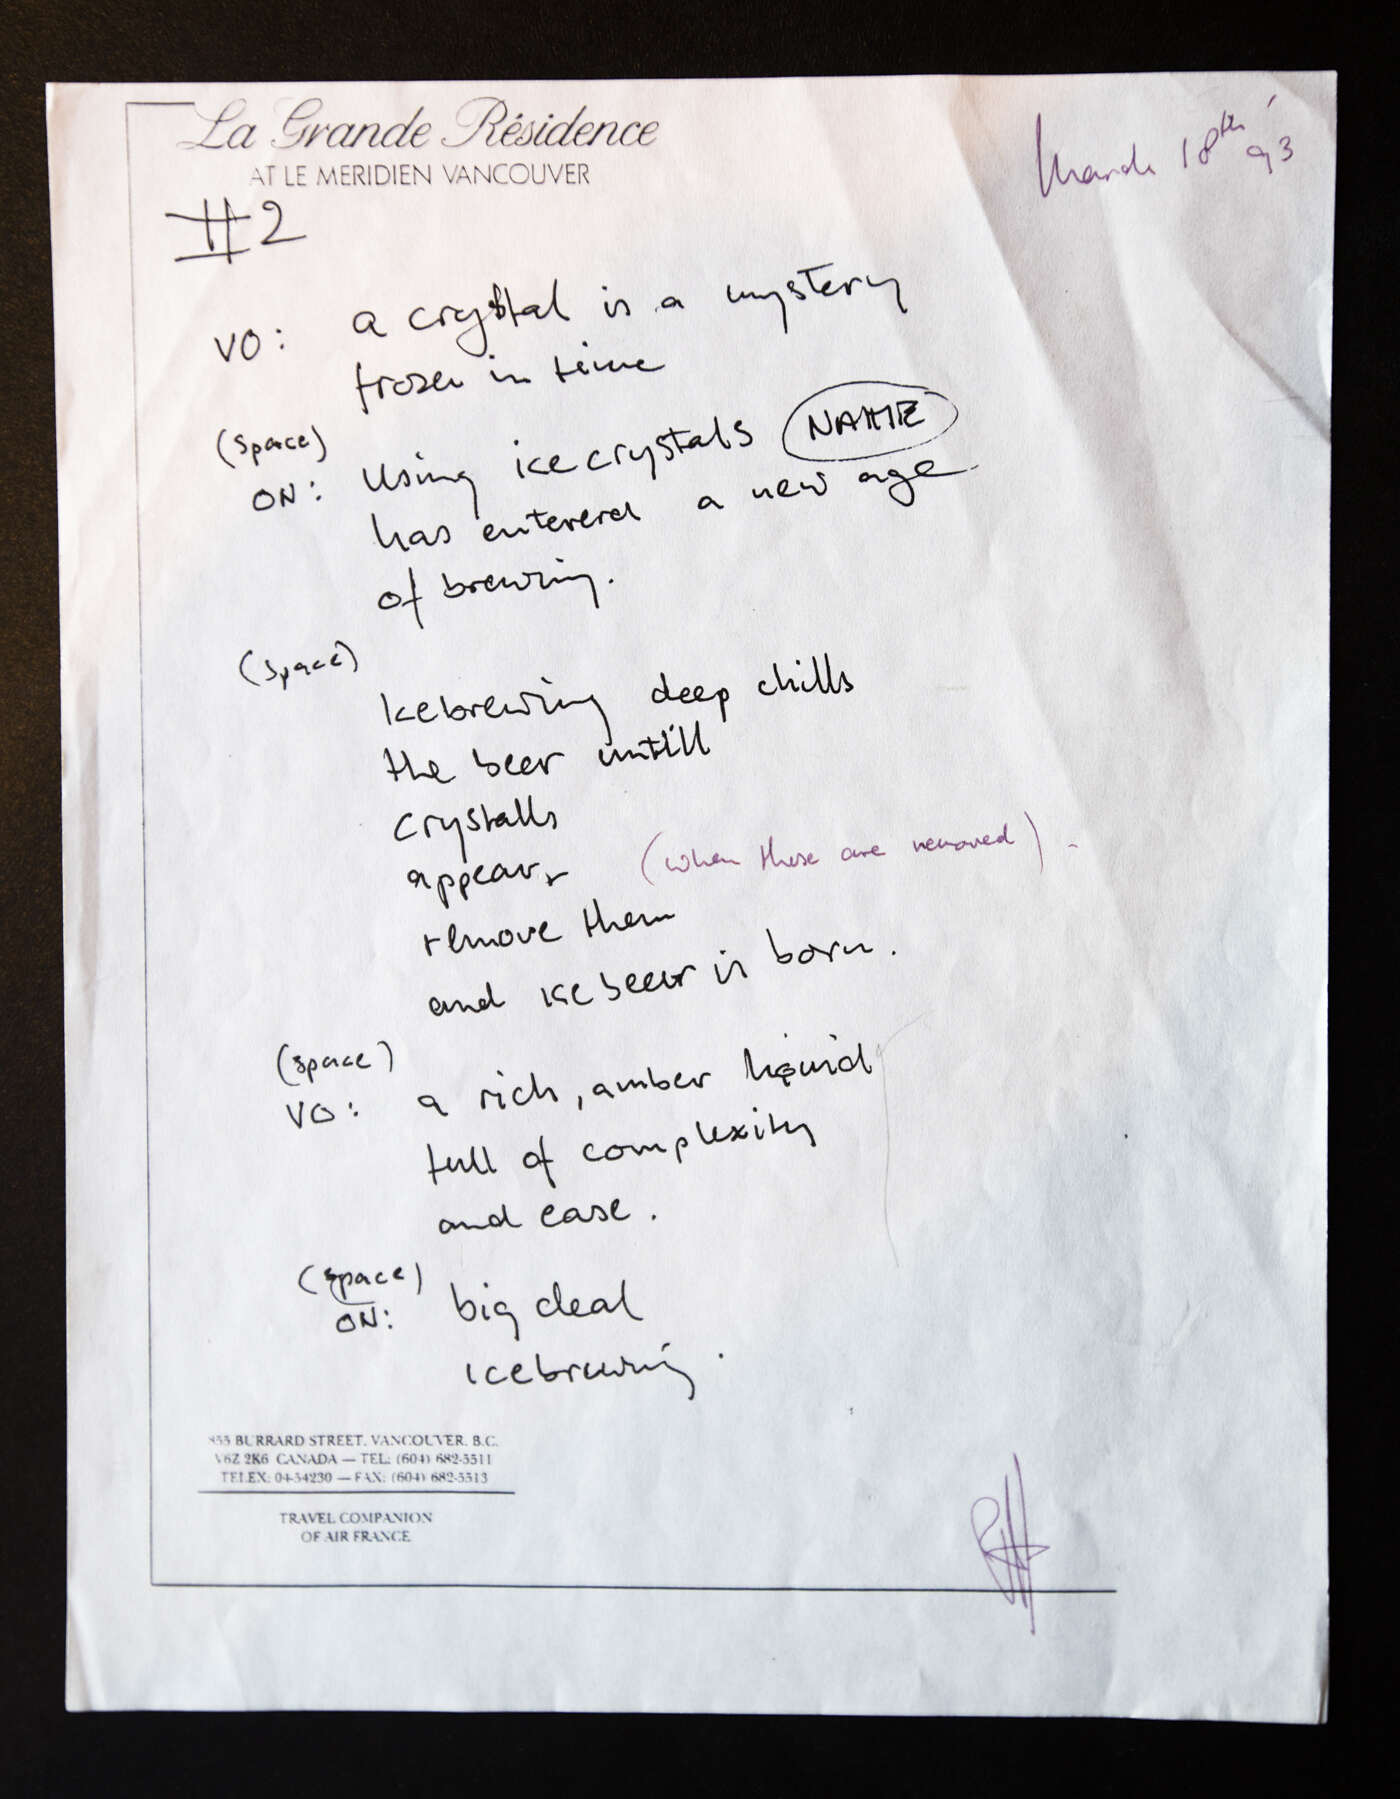 La Grande Résidence
AT LE MERIDIEN VANCOUVER
March 18th '93
#2
VO: a crystal is a mystery
frozen in time
(space)
ON: Using ice crystals NAME
has entered a new age
of brewing.
(space)
Icebrewing deep chills
the beer untill
crystalls
appear, (when these are removed).
remove them
and ice beer is born.
(space)
VO: a rich, amber liquid
full of complexity
and ease.
(space)
ON: big deal
icebrewing.
855 BURRARD STREET, VANCOUVER, B.C.
V6Z 2K6 CANADA — TEL: (604) 682-5511
TELEX: 04-54230 — FAX: (604) 682-5513
TRAVEL COMPANION
OF AIR FRANCE